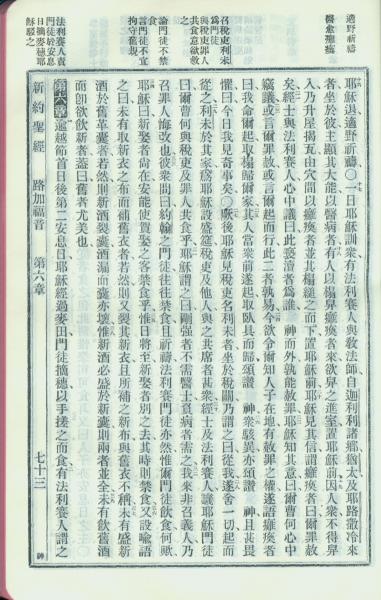 適野祈禱
醫愈癱瘓
召稅吏利未
爲門徒
與稅吏罪人
共食意欲救
論門徒不禁
食
言門徒不宜
拘守舊規
法利賽人責
門徒於安息
日摘麥穗耶
穌駁之
耶穌退適野祈禱○一日耶穌訓衆有法利賽人與敎法師自迦利利諸鄉猶太及耶路撒冷來
者坐於彼主顯其大能以醫病者有人以榻舁癱瘓者來欲舁之進室置耶穌前因人衆不得舁
入乃升屋揭瓦由穴間以癱瘓者並其榻縋之而下置耶穌前耶穌見其信謂癱瘓者曰爾罪赦
矣經士與法利賽人心中議曰此褻瀆者爲誰　神而外孰能赦罪耶穌知其意曰爾曹何心中
竊議或言爾罪赦或言爾起而行此二者孰易今欲令爾知人子在地有赦罪之權遂語癱瘓者
曰我命爾起取榻歸爾家其人當衆前遂起取臥具而歸頌讚　神衆駭異亦頌讚　神且甚畏
懼曰今日我見奇事矣○厥後耶穌見稅吏名利未者坐於稅關乃謂之曰從我遂舍一切起而
從之利未於其家爲耶穌設盛筵稅吏及他人與之共席者甚衆經士及法利賽人議耶穌門徒
曰爾曹何與稅吏及罪人共食乎耶穌謂之曰剛强者不需醫士負病者需之我來非召義人乃
召罪人悔改也彼衆問曰約翰之門徒往往禁食且祈禱法利賽門徒亦然惟爾門徒飲食何歟
耶穌曰新娶者尚在安能使賀娶之客禁食乎惟日將至新娶者別之去其時則禁食又設喻語
之曰未有取新衣之布而補舊衣者若然則又裂其新衣且所補之新布與舊衣不稱未有盛新
酒於舊革囊者若然則新酒裂囊酒漏而囊亦壞惟新酒必盛於新囊則兩者並全未有飲舊酒
而卽欲飲新者蓋曰舊者尤美也
第六章 逾越節首日後第二安息日耶穌經過麥田門徒摘穗以手搓之而食有法利賽人謂之
新約聖經　路加福音　第六章　七十三　神